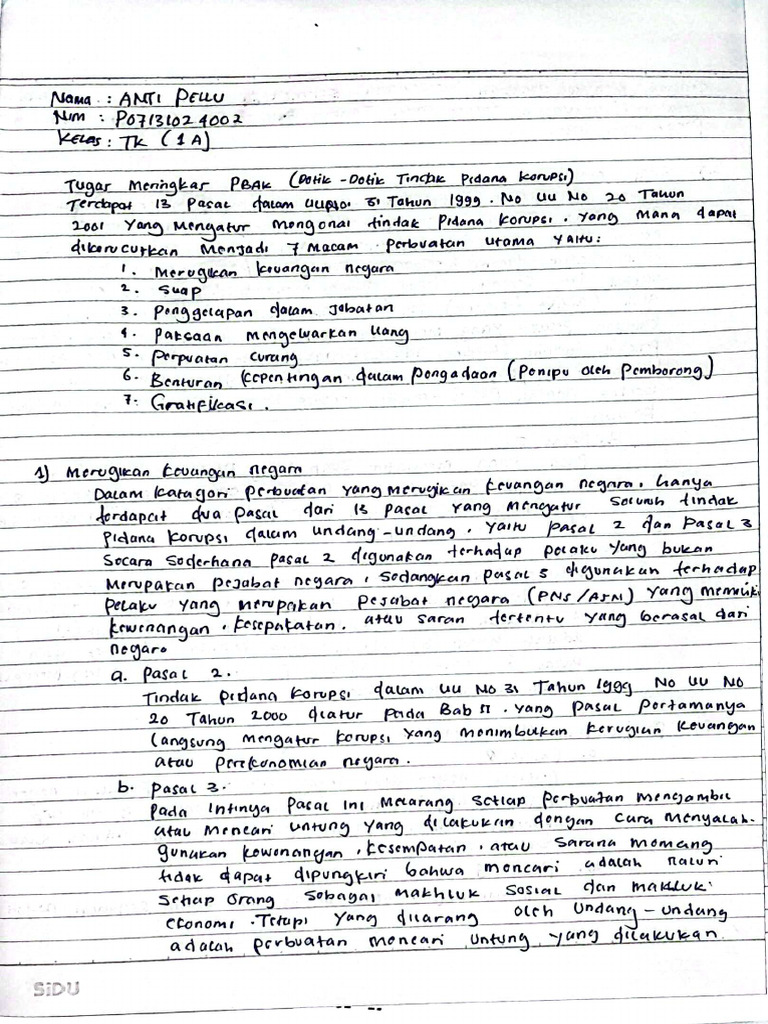 Nama : ANTI PELLU
Nim : P07131024002
Kelas : TK (1A)
Tugas Meringkas PBAK (Dotik-Dotik Tindak Pidana Korupsi)
Terdapat 13 Pasal dalam UU No 31 Tahun 1999. No UU No 20 Tahun
2001 Yang Mengatur Mengenai tindak Pidana Korupsi. Yang mana dapat
dikerucutkan Menjadi 7 Macam Perbuatan utama Yaitu:
1. Merugikan keuangan negara
2. Suap
3. Penggelapan dalam Jabatan
4. Paksaan mengeluarkan Uang
5. Perpuatan curang
6. Benturan kepentingan dalam Pengadaan (Penipu oleh Pemborong)
7. Gratifikasi.
1) Merugikan keuangan negara
Dalam katagori Perbuatan Yang merugikan keuangan negara, hanya
terdapat dua Pasal dari 13 Pasal Yang mengatur Seluruh tindak
Pidana Korupsi dalam undang-undang. Yaitu Pasal 2 dan Pasal 3
Secara Sederhana Pasal 2 digunakan terhadap Pelaku Yang bukan
Merupakan Pejabat negara, Sedangkan Pasal 3 digunakan terhadap
Pelaku Yang merupakan Pejabat negara (PNS/ASN) Yang memiliki
kewenangan, kesepakatan, atau saran tertentu Yang berasal dari
negara
a. Pasal 2.
Tindak Pidana Korupsi dalam UU No 31 Tahun 1999 No UU No
20 Tahun 2000 diatur Pada Bab II. Yang Pasal Pertamanya
Langsung Mengatur Korupsi Yang menimbulkan kerugian Keuangan
atau Perekonomian negara.
b. Pasal 3.
Pada Intinya Pasal ini Melarang Setiap Perbuatan Mengambil
atau Mencari Untung Yang dilakukan dengan Cara Menyalah-
gunakan Kewenangan, Kesempatan, atau Sarana Memang
tidak dapat dipungkiri bahwa mencari adalah naluri
Setiap Orang Sebagai Makhluk Sosial dan Makhluk
ekonomi. Tetapi Yang dilarang oleh Undang-undang
adalah Perbuatan Mencari Untung Yang dilakukan
SiDU